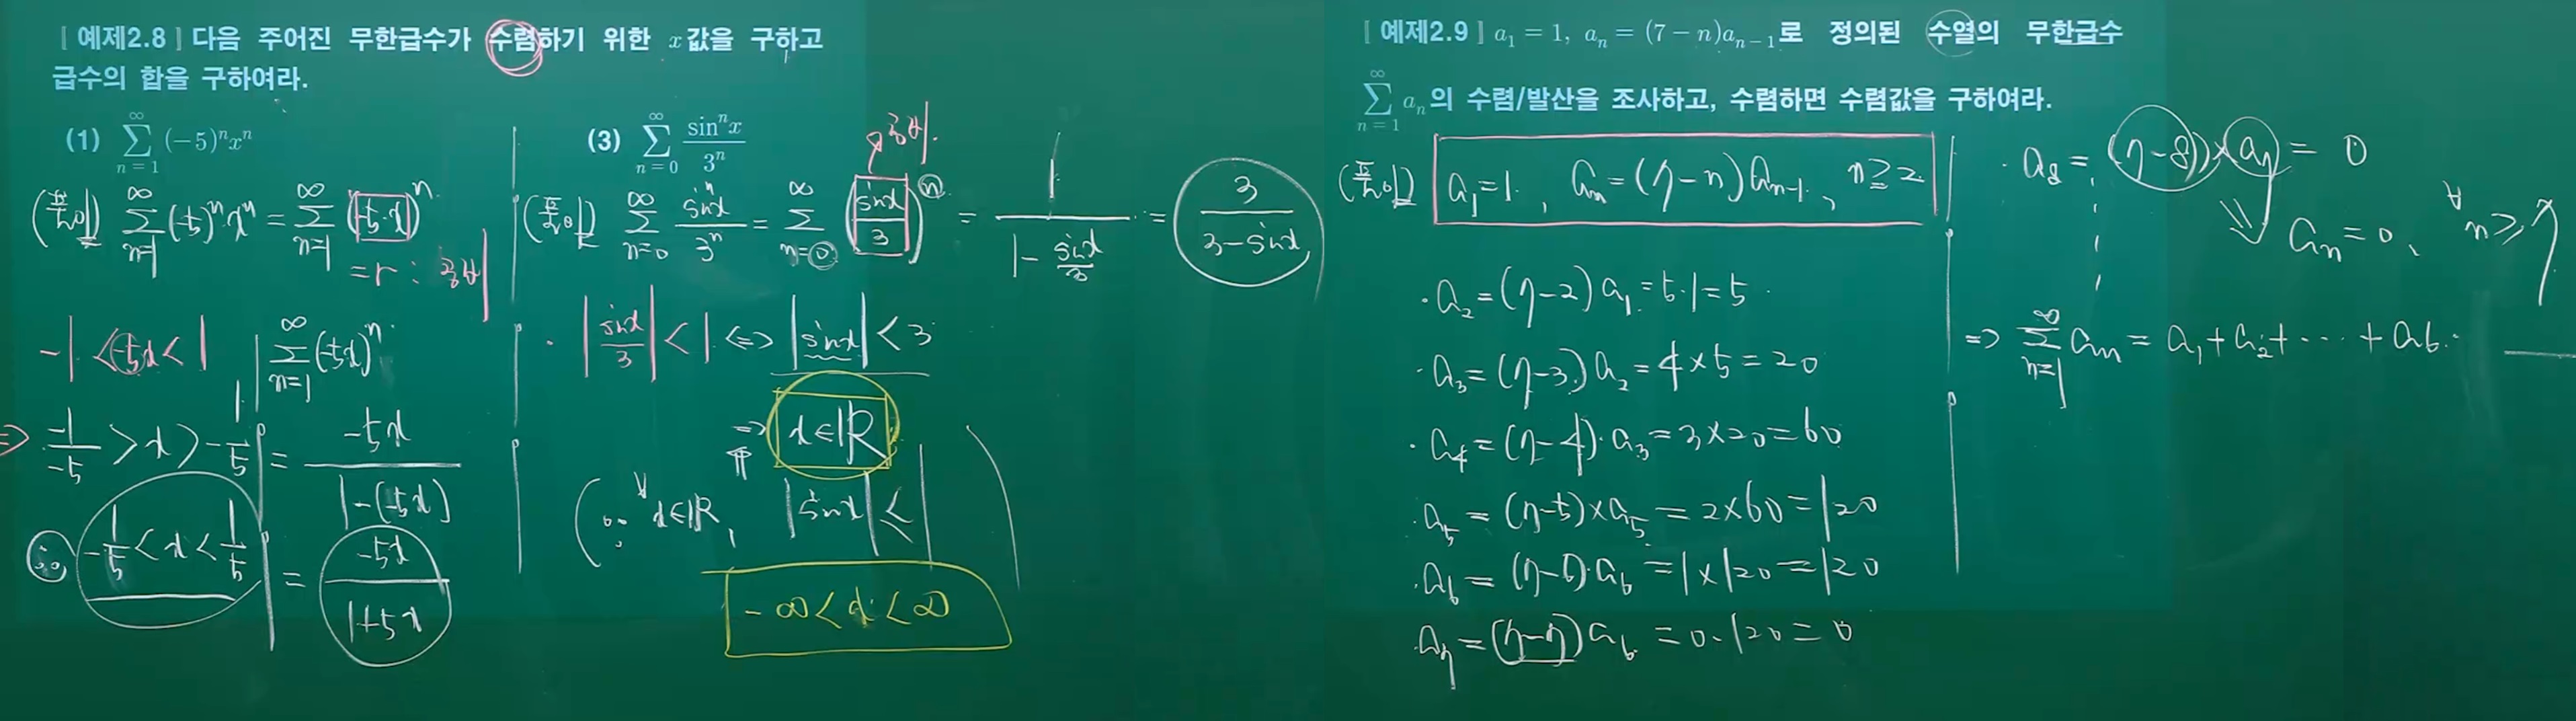 [예제2.8] 다음 주어진 무한급수가 수렴하기 위한 x값을 구하고
급수의 합을 구하여라.
(1) ∑_{n=1}^{∞} (-5)^n x^n
(풀이) ∑_{n=1}^{∞} (-5)^n x^n = ∑_{n=1}^{∞} (-5·x)^n
= r : 공비
-1 < -5x < 1
∑_{n=1}^{∞} (-5x)^n
⇒ -1/-5 > x > -1/5
= -5x / 1-(-5x)
∴ -1/5 < x < 1/5
= -5x / 1+5x
(3) ∑_{n=0}^{∞} sin^n x / 3^n
공비.
(풀이) ∑_{n=0}^{∞} sin^n x / 3^n = ∑_{n=0}^{∞} (sinx / 3)^n = 1 / 1 - sinx/3 = 3 / 3-sinx
· |sinx / 3| < 1 ⇔ |sinx| < 3
⇒ x∈ℝ
⇑
(∵ ∀x∈ℝ, |sinx| < 1)
-∞ < x < ∞
[예제2.9] a_1 = 1, a_n = (7-n)a_{n-1}로 정의된 수열의 무한급수
∑_{n=1}^{∞} a_n의 수렴/발산을 조사하고, 수렴하면 수렴값을 구하여라.
(풀이) a_1=1, a_n=(7-n)a_{n-1}, n≥2
·a_2=(7-2)a_1=5·1=5
·a_3=(7-3)a_2=4×5=20
·a_4=(7-4)·a_3=3×20=60
·a_5=(7-5)×a_5=2×60=120
·a_6=(7-6)·a_6=1×120=120
·a_7=(7-7)a_6=0·120=0
·a_8=(7-8)×a_7=0
⇓ a_n=0, ∀n≥7
⇒ ∑_{n=1}^{∞} a_n = a_1+a_2+···+a_6